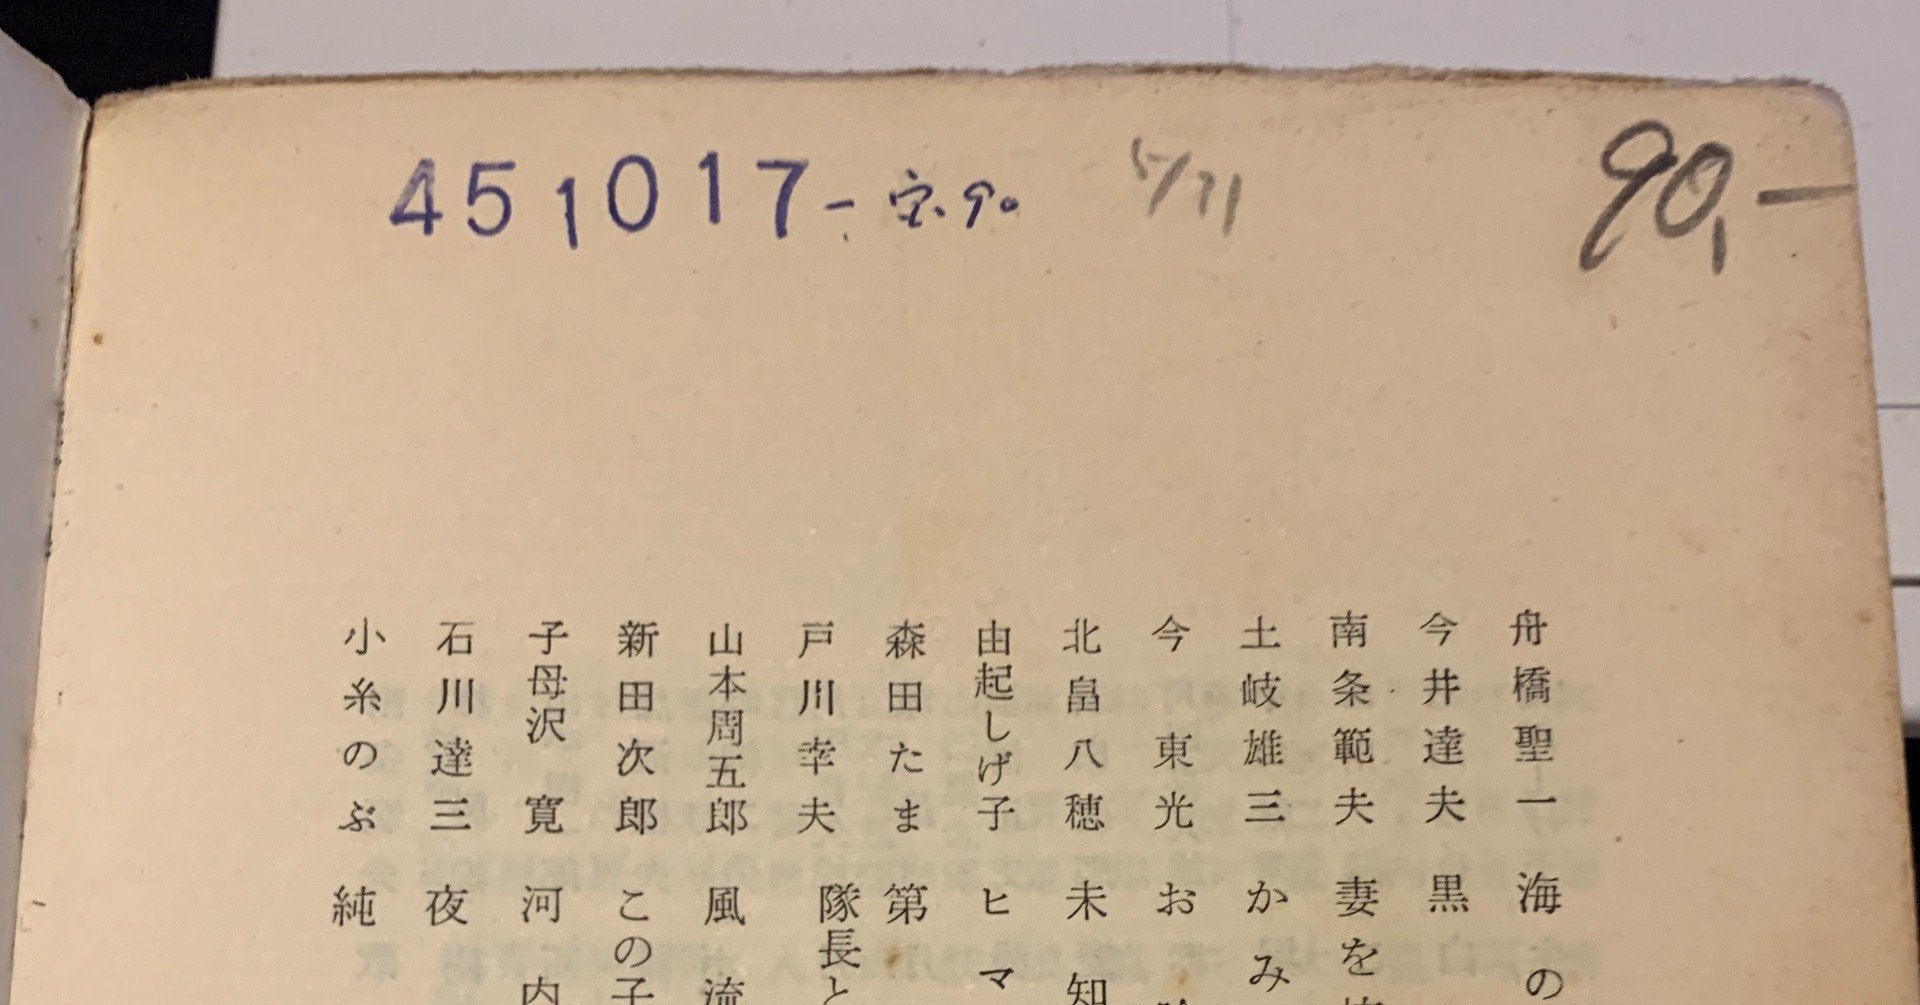 451017-宝.90
5/71
90,-
舟橋聖一 海の
今井達夫 黒
南条範夫 妻を
土岐雄三 かみ
今東光 お
北畠八穂 未知
由起しげ子 ヒマ
森田たま 第
戸川幸夫 隊長と
山本周五郎 風流
新田次郎 この子
子母沢寛 河内
石川達三 夜
小糸のぶ 純